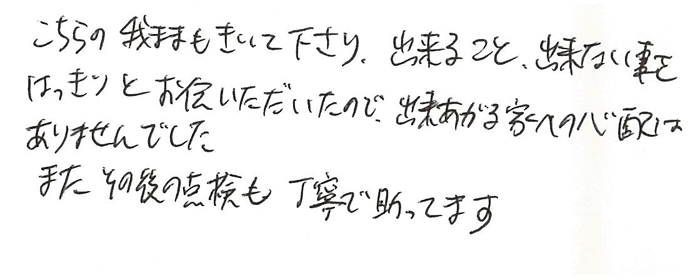 こちらの我ままもきいて下さり、出来ること、出来ない事を
はっきりとお伝いただいたので、出来あがる家への心配は
ありませんでした
また その後の点検も 丁寧で助ってます